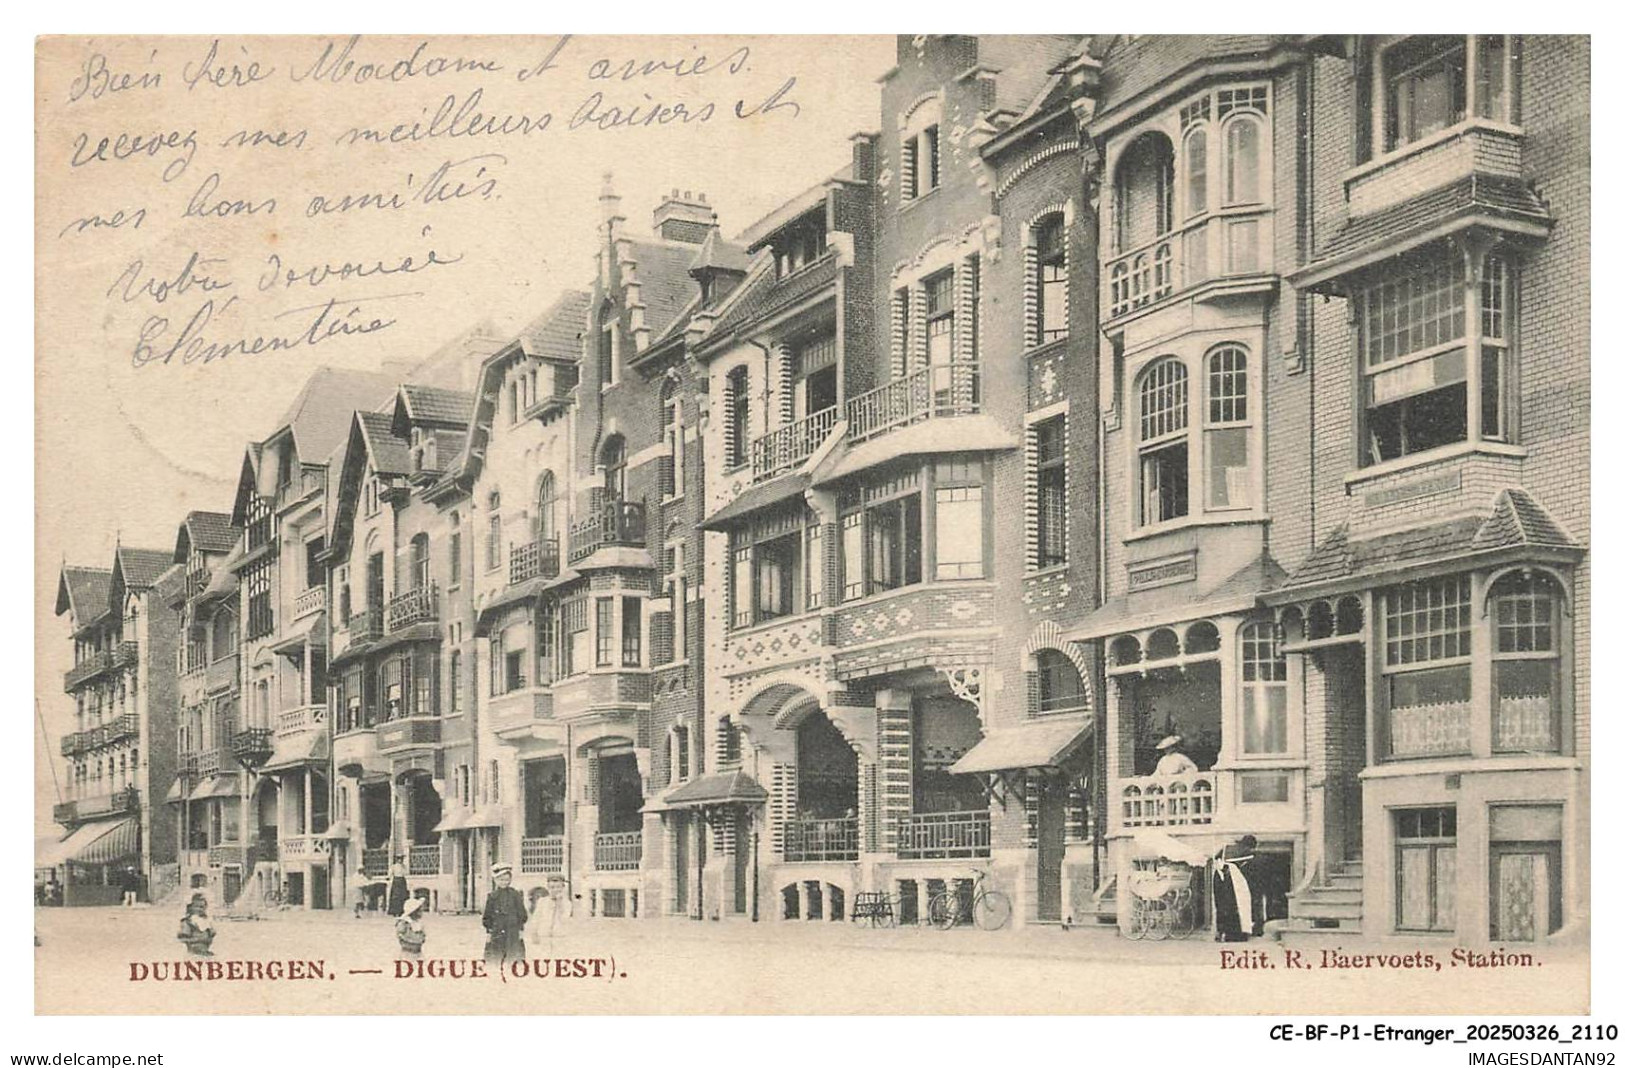 Bien chère Madame et amies.
recevez mes meilleurs baisers et
mes bons amitiés.
Votre devouée
Clémentine
DUINBERGEN. — DIGUE (OUEST).
Edit. R. Baervoets, Station.
CE-BF-P1-Etranger_20250326_2110
www.delcampe.net
IMAGESDANTAN92